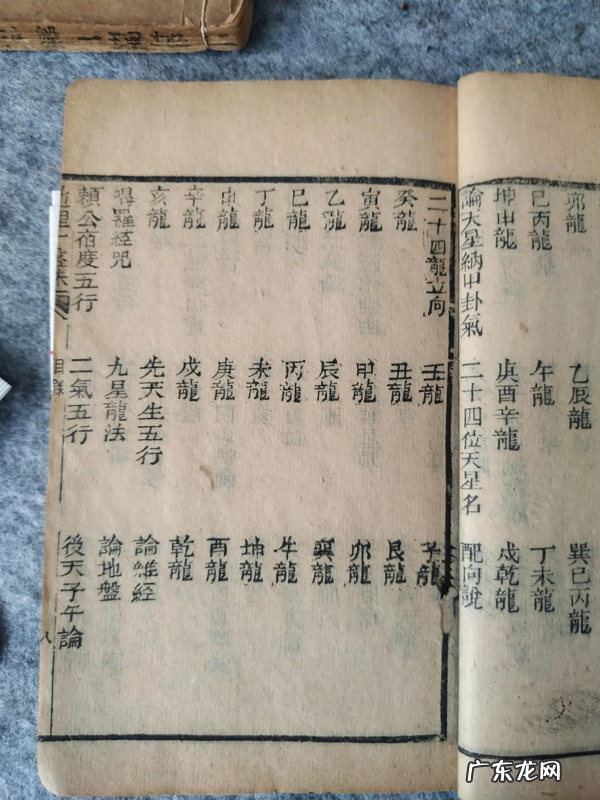 卯龍　乙辰龍　巽巳丙龍
巳丙龍　午龍　丁未龍
坤申龍　庚酉辛龍　戌乾龍
論天星納甲卦氣　二十四位天星名　配向說
二十四龍立向　壬龍　子龍
癸龍　丑龍　艮龍
寅龍　甲龍　卯龍
乙龍　辰龍　巽龍
巳龍　丙龍　午龍
丁龍　未龍　坤龍
申龍　庚龍　酉龍
辛龍　戌龍　乾龍
亥龍　先天生五行　論維經
得羅經咒　九星龍法　論地盤
賴公宿度五行　二氣五行　後天子午論
目錄　八
广东龙网